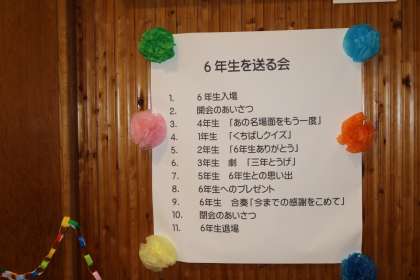 6年生を送る会
1. 6年生入場
2. 開会のあいさつ
3. 4年生 「あの名場面をもう一度」
4. 1年生 「くちばしクイズ」
5. 2年生 「6年生ありがとう」
6. 3年生 劇 「三年とうげ」
7. 5年生 6年生との思い出
8. 6年生へのプレゼント
9. 6年生 合奏「今までの感謝をこめて」
10. 閉会のあいさつ
11. 6年生退場